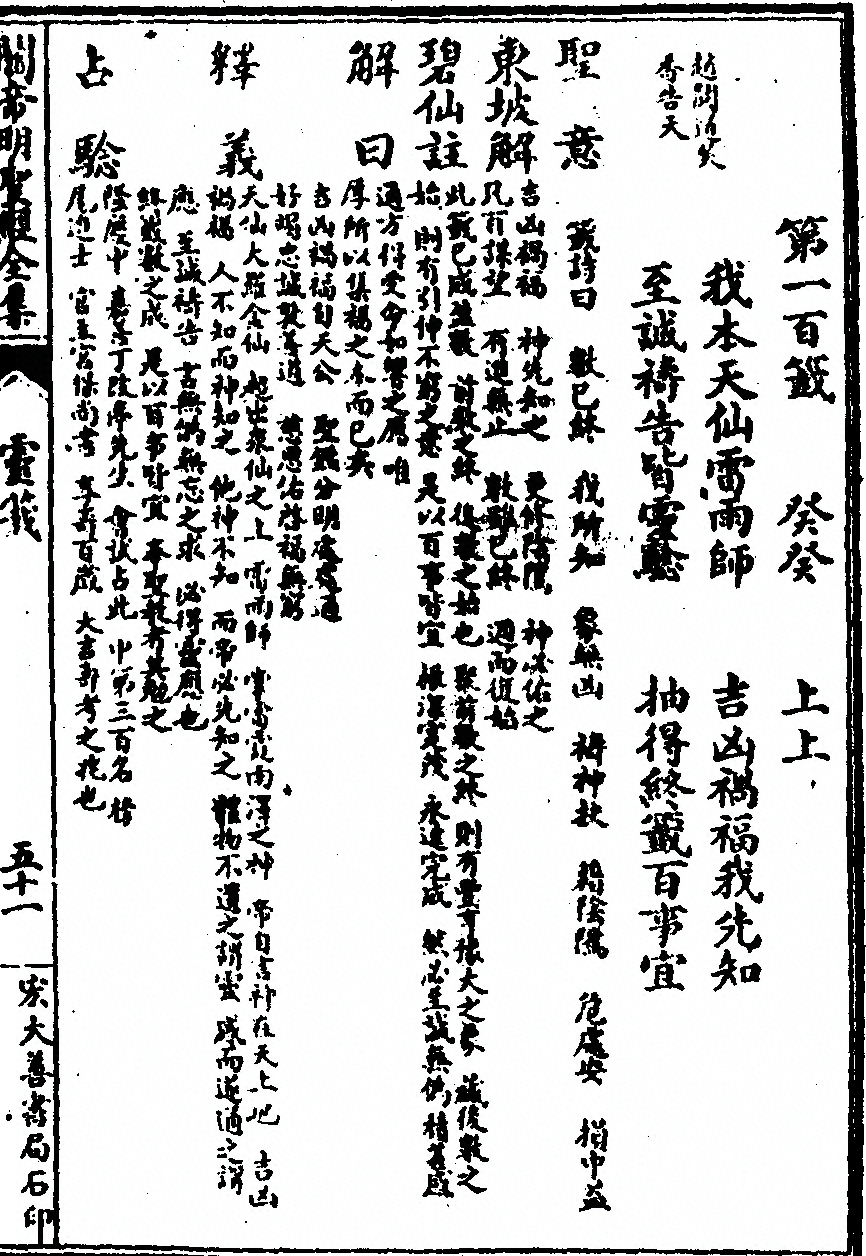 第一百籤 癸癸 上上
我本天仙雷雨師 吉凶禍福我先知
至誠禱告皆靈驗 抽得終籤百事宜
焚告天
聖意 籤詩曰 數已終 我所知 象無凶 禱神 藉陰隲 危處安 損中益
東坡解 吉凶禍福 神先知之 更修陰隲 神必佑之
凡有謀望 有進無止 數雖已終 週而復始
碧仙註 此籤已成盈數 前數之終 後數之始也 聚前數之終 則有豐亨豫大之象 議後數之
始 則有引伸不窮之意 是以百事皆宜 根深實茂 永遠完成 然必至誠無偽 積善感
通方得受命如響之應 唯
厚所以集福之本而已矣
解曰 吉凶禍福自天公 聖鑑分明處處通
好竭忠誠敦善道 慈恩佑啓福無窮
釋義 天仙大羅金仙 超出衆仙之上 雷雨師 掌雷霆雨澤之神 帝自言神在天上也 吉凶
禍福 人不知而神知之 他神不知 而帝必先知之 體物不遺之謂靈 感而遂通之謂
應 至誠禱告 言無偽無忘之求 必得靈應也
終籤數之成 是以百事皆宜 奉聖教者其勉之
占驗 隆慶中 嘉善丁陵陽先生 會試占此 中第三百名 榜
尾進士 官至宮保尚書 享壽百歲 大吉
關帝明聖經全集
靈籤
五十一
宏大善書局石印